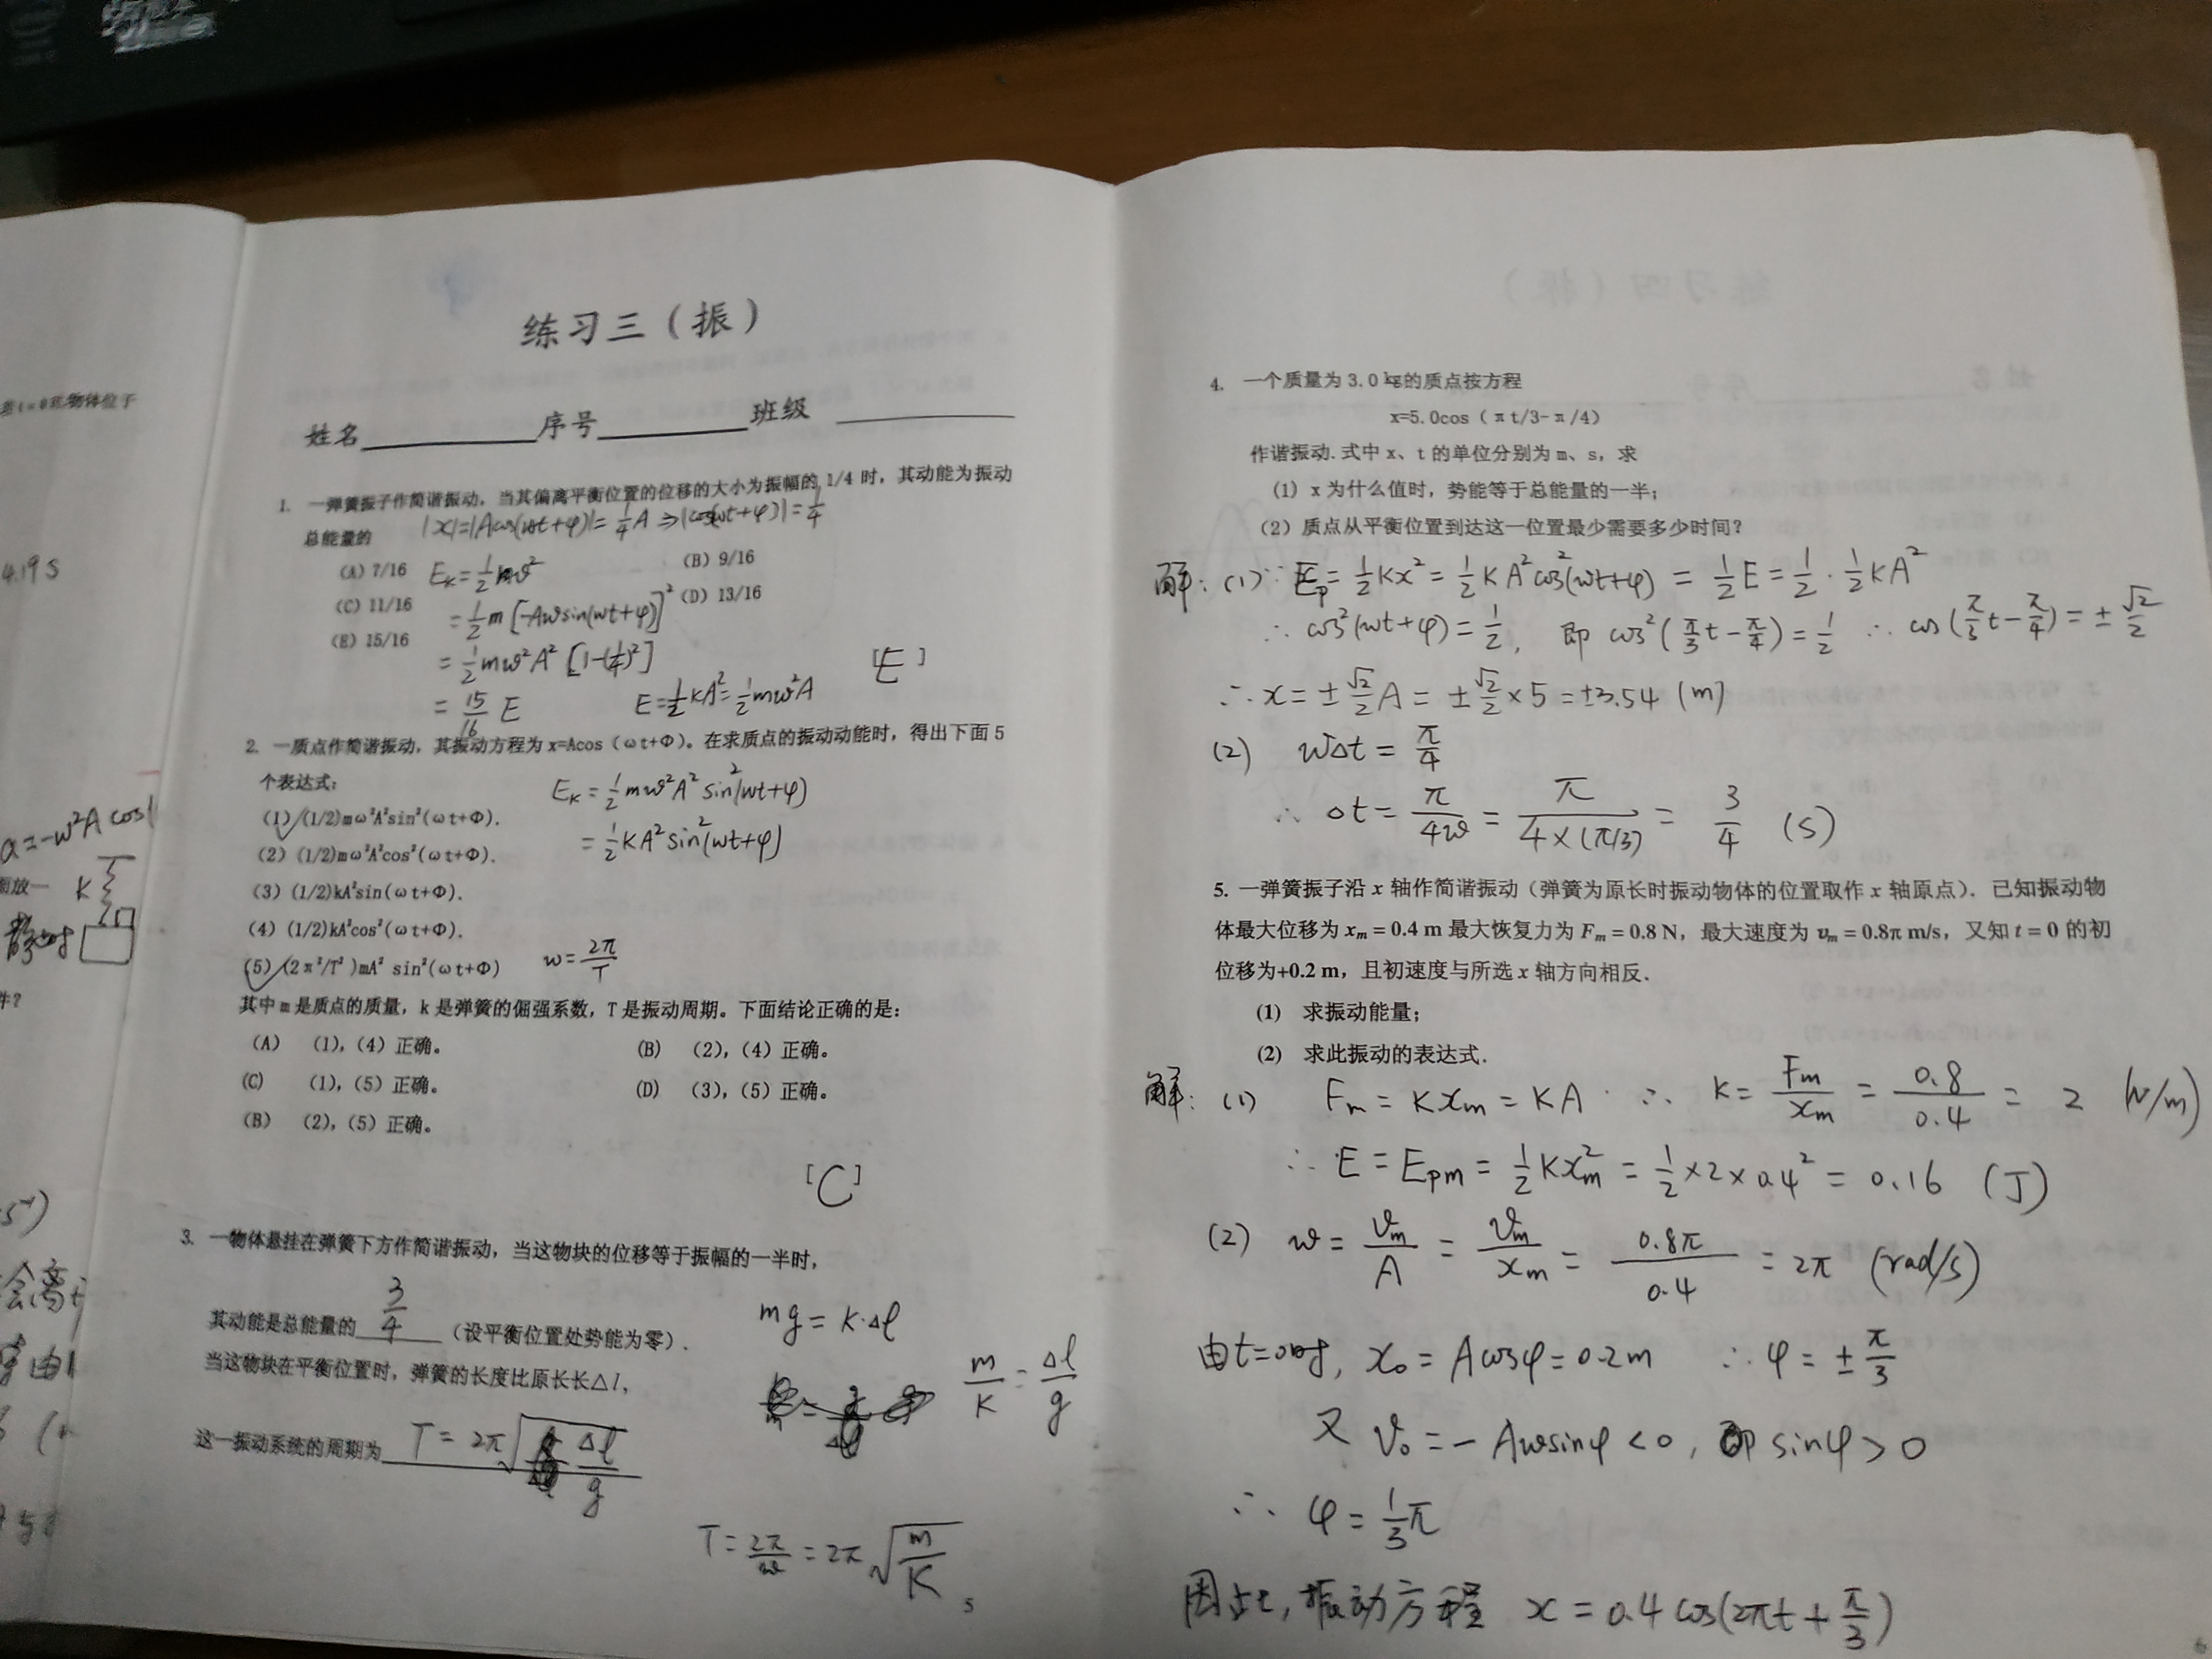 若t=0时物体位于
4.19 s
a=-ω²A cos(
面放一
K
静止时
件?
练习三（振）
姓名 序号 班级
1. 一弹簧振子作简谐振动，当其偏离平衡位置的位移的大小为振幅的 1/4 时，其动能为振动
总能量的
|x|=|Acos(ωt+φ)|=1/4 A ⇒|cos(ωt+φ)|=1/4
(A) 7/16 (B) 9/16
(C) 11/16 (D) 13/16
(E) 15/16
E_K=1/2 mv²
=1/2 m[-Aωsin(ωt+φ)]²
=1/2 mω²A²[1-(1/4)²]
=15/16 E
E=1/2 KA²=1/2 mω²A
[E]
2. 一质点作简谐振动，其振动方程为x=Acos（ωt+Φ）。在求质点的振动动能时，得出下面 5
个表达式：
(1) (1/2)mω²A²sin²(ωt+Φ).
(2) (1/2)mω²A²cos²(ωt+Φ).
(3) (1/2)kA²sin(ωt+Φ).
(4) (1/2)kA²cos²(ωt+Φ).
(5) (2π²/T²)mA² sin²(ωt+Φ)
E_K=1/2 mω²A² sin²(ωt+φ)
=1/2 KA² sin²(ωt+φ)
ω=2π/T
其中 m 是质点的质量，k 是弹簧的倔强系数，T 是振动周期。下面结论正确的是：
(A) (1)，(4) 正确。 (B) (2)，(4) 正确。
(C) (1)，(5) 正确。 (D) (3)，(5) 正确。
(B) (2)，(5) 正确。
[C]
3. 一物体悬挂在弹簧下方作简谐振动，当这物块的位移等于振幅的一半时，
其动能是总能量的 3/4 （设平衡位置处势能为零）.
当这物块在平衡位置时，弹簧的长度比原长长△l，
这一振动系统的周期为 T=2π√(Δl/g)
mg=K·Δl
m/K=Δl/g
T=2π/ω=2π√(m/K)
5
4. 一个质量为3.0㎏的质点按方程
x=5.0cos（πt/3-π/4）
作谐振动.式中 x、t 的单位分别为 m、s，求
（1）x 为什么值时，势能等于总能量的一半；
（2）质点从平衡位置到达这一位置最少需要多少时间？
解：(1)∵ E_p=1/2 Kx²=1/2 KA²cos²(ωt+φ)=1/2 E=1/2·1/2 KA²
∴ cos²(ωt+φ)=1/2，即 cos²(π/3 t-π/4)=1/2 ∴ cos(π/3 t-π/4)=±√2/2
∴ x=±√2/2 A=±√2/2×5=±3.54 (m)
(2) ωΔt=π/4
∴ Δt=π/4ω=π/(4×(π/3))=3/4 (s)
5. 一弹簧振子沿 x 轴作简谐振动（弹簧为原长时振动物体的位置取作 x 轴原点）. 已知振动物
体最大位移为 x_m = 0.4 m 最大恢复力为 F_m = 0.8 N，最大速度为 v_m = 0.8π m/s，又知 t = 0 的初
位移为+0.2 m，且初速度与所选 x 轴方向相反.
(1) 求振动能量；
(2) 求此振动的表达式.
解：(1) F_m=Kx_m=KA ∴ K=F_m/x_m=0.8/0.4=2 (N/m)
∴ E=E_pm=1/2 Kx_m²=1/2×2×0.4²=0.16 (J)
(2) ω=v_m/A=v_m/x_m=0.8π/0.4=2π (rad/s)
由t=0时，x₀=Acosφ=0.2m ∴ φ=±π/3
又 v₀=-Aωsinφ<0，即 sinφ>0
∴ φ=1/3 π
因此，振动方程 x=0.4 cos(2πt+π/3)
6